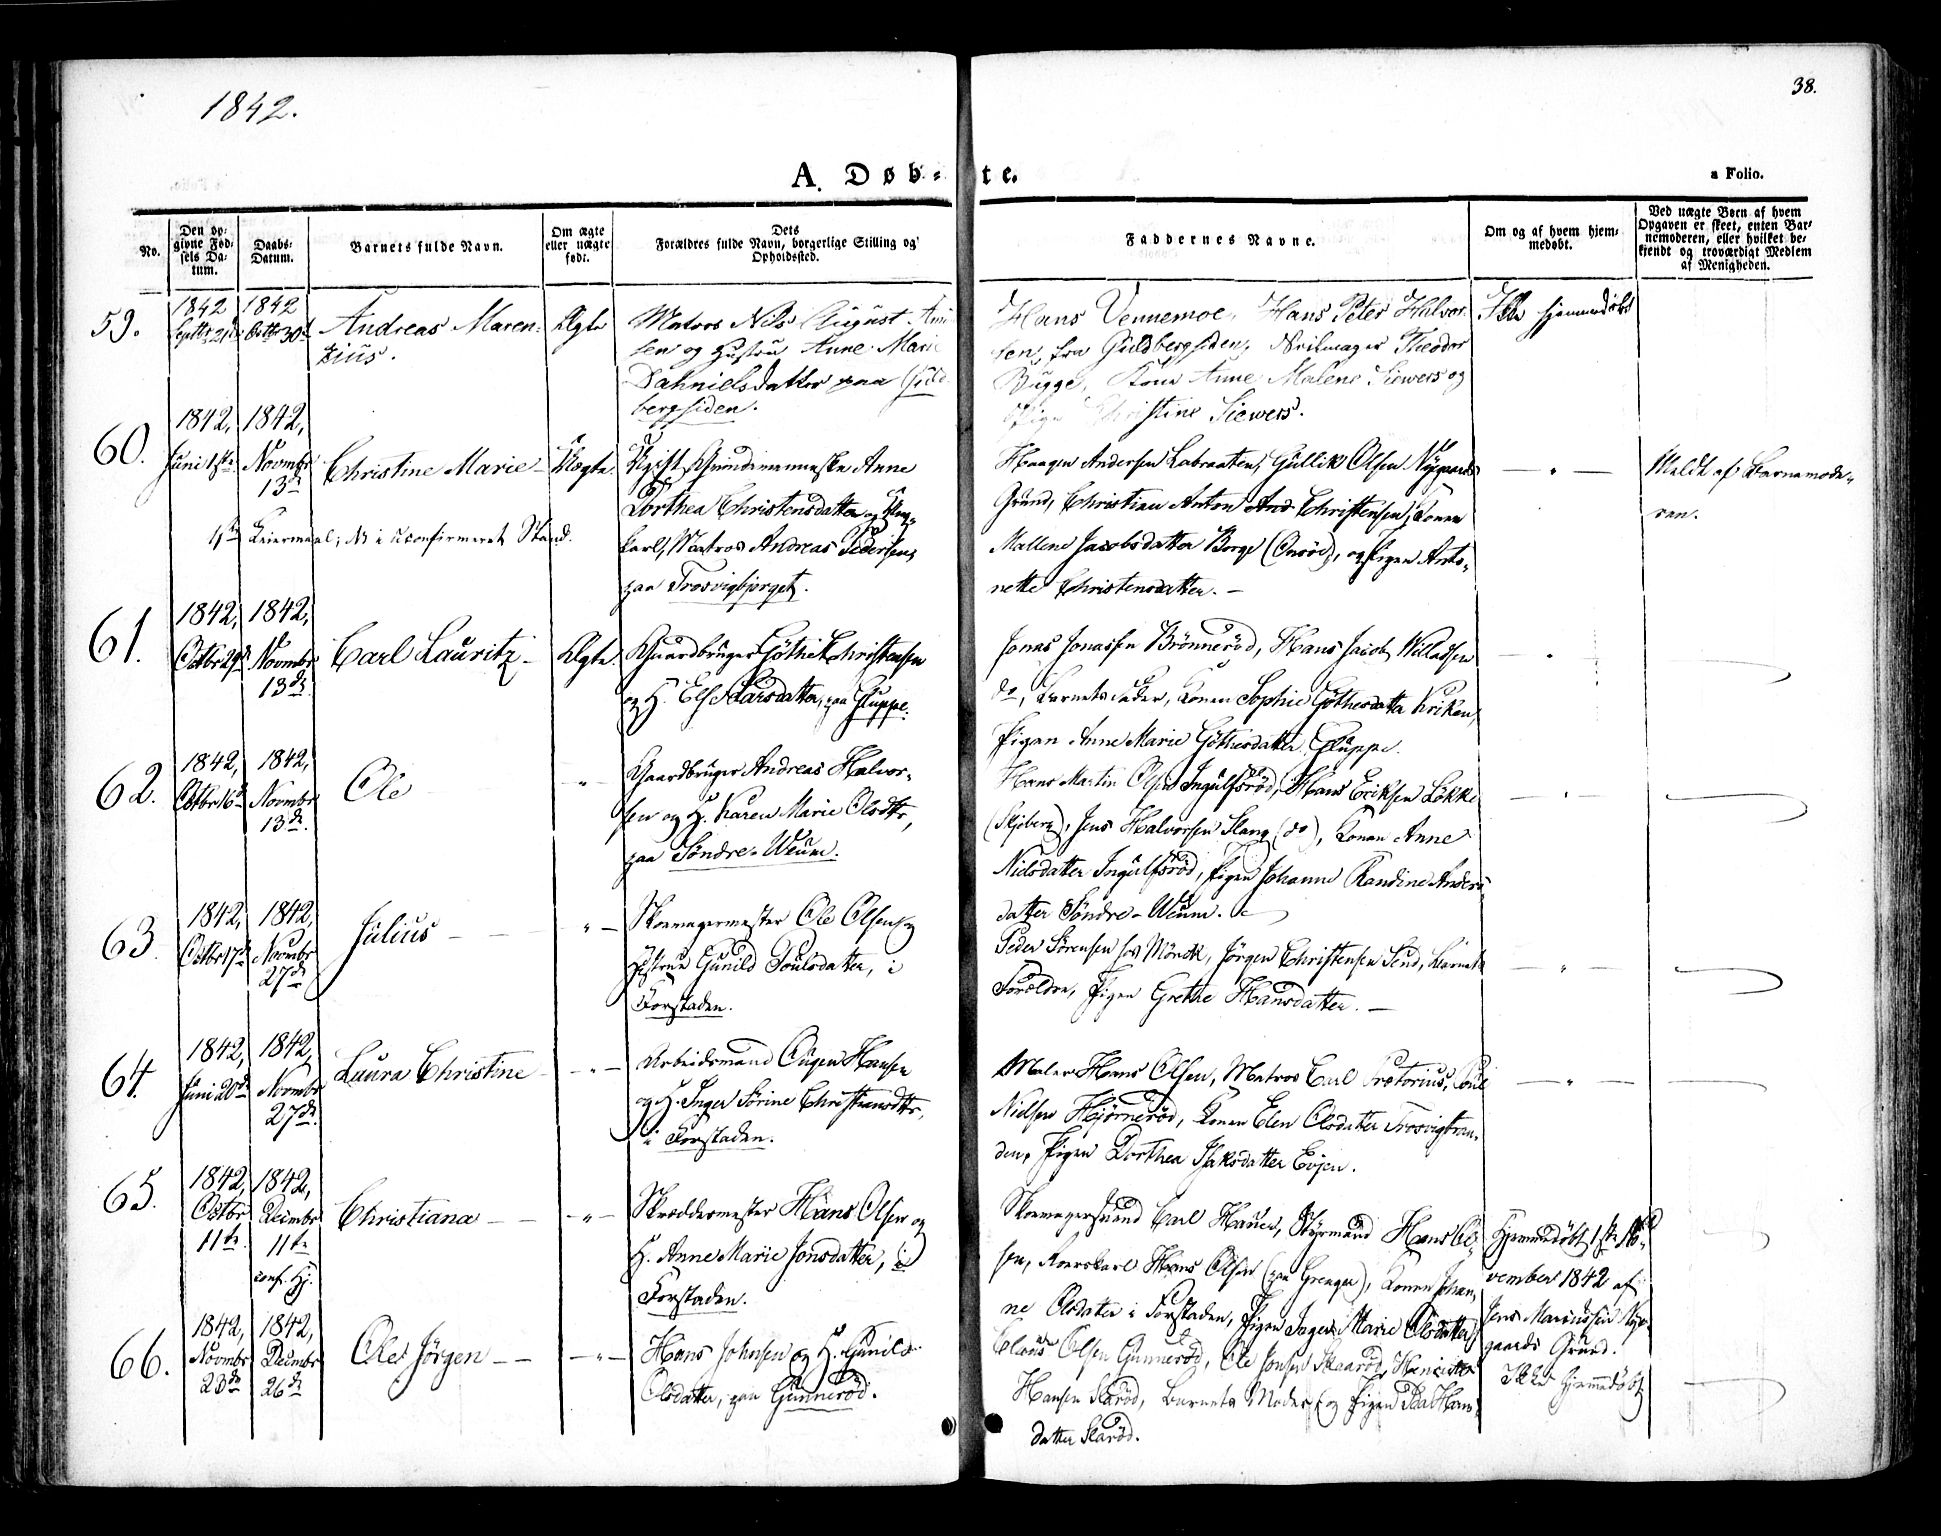 1842.
38.
A. Døb-te.
a Folio.
No.
Den op-
givne Fød-
sels Da-
tum.
Daabs-
Datum.
Barnets fulde Navn.
Om ægte
eller uægte
født.
Dets
Forældres fulde Navn, borgerlige Stilling og
Opholdssted.
Faddernes Navne.
Om og af hvem hjem-
medøbt.
Ved uægte Børn af hvem
Opgaven er skeet, enten Bar-
nemoderen, eller hvilket be-
kjendt og troværdigt Medlem
af Menigheden.
59.
1842
Septbr 21
1842
Octbr 30
Andreas Maren-
zius.
Ægte
Matros Nils August
sen og Hustru Anne Marie
Dahnielsdatter paa Guld
bergsiden.
Hans Vennemoe, Hans Peter Halvor-
sen, fra Guldbergsiden, Theodor
Bugge, Kone Anne Malene Siewers og
Pige Christine Siewers.
Ikke hjemmedøbt
60.
1842,
Juni 1ste
1842,
Novmbr
13de
Christine Marie
Uægte.
Ugift Anne
Dorthea Christensdatter og Ung-
karl, Matros Andreas Pedersen,
paa Trosvigbjerget.
1ste Leiermaal; NB i uconfirmeret Stand.
Haagen Andersen Labraaten, Gullik Olsen Nygaards
Grund, Christian Anton Christensen, Konen
Mallene Jacobsdatter Borge (Onsöe), og Pigen Anto-
nette Christensdatter. —
— " —
Meldt af Barnemode-
ren.
61.
1842,
Octbr 29
1842,
Novmbr
13de
Carl Lauritz
Ægte.
Gaardbruger Göthe Christensen
og H. Else Larsdatter, paa Gluppe.
Jonas Jonassen Brönneröd, Hans Jacob Willadsen
do, Barnets Fader, Konen Sophie Göthesdatter Kriken,
Pigen Anne Marie Göthesdatter Gluppe.
62.
1842,
Octbr 16de
1842,
Novmbr
13de
Ole
"
Gaardbruger Andreas Halvor-
sen og H. Karen Marie Olsdtr,
paa Söndre-Weum.
Hans Martin Olsen Ingulfsröd, Hans Eriksen Lökke
(Skjeberg), Jens Halvorsen Slang (do), Konen Anne
Nielsdatter Ingulfsröd, Pigen Johanne Randine Anders-
datter Söndre-Weum.
63.
1842,
Octbr 17de
1842,
Novmbr
27de
Julius
"
Skomagermester Ole Olsen og
Hustrue Gunild Poulsdatter, i
Forstaden.
Peder Sörensen hos Mönck, Jörgen Christensen Lund, Barnets
Forældre, Pigen Grethe Hansdatter. —
64.
1842,
Juni 20de
1842,
Novmbr
27de
Laura Christine
"
Arbeidsmand Ougen Hansen
og H. Inger Sörine Christiansdtr,
i Forstaden.
Maler Hans Olsen, Matros Carl Prætorius, Poul
Nielsen Hjörneröd, Konen Elen Olsdatter Trosvigstran-
den, Pigen Dorthea Isaksdatter Evjen.
65.
1842,
Octbr
11te
1842,
Decmbr
11te
conf. Hj.
Christiana
"
Skræddermester Hans Olsen og
H. Anne Marie Jonsdatter, i
Forstaden.
Skomagersvend Carl Hauer, Styrmand Hans Ol-
sen, Hans Olsen, Konen Johan-
ne Olsdatter i Forstaden, Pigen Inger Marie Olsdatter
Hjemmedöbt 1ste No-
vember 1842 af
Jens Mariussen Nye-
gaards Grund.
66.
1842,
Novmbr
23de
1842,
Decmbr
26de
Ole Jörgen
"
Hans Johnsen og H. Gunild
Olsdatter, paa Gunneröd.
Claus Olsen Gunneröd, Ole Jonsen Skaaröd,
Hansen Skaröd, Barnets Moder og Pigen Hans-
datter Skaröd.
Ikke hjemmedöbt